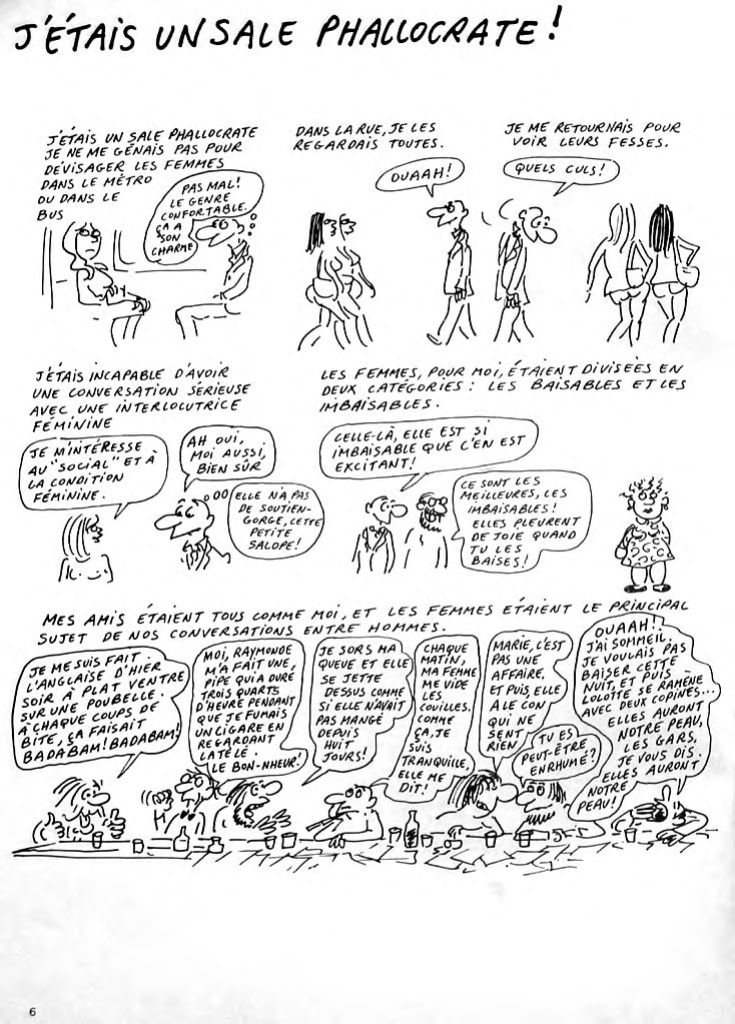 J'ÉTAIS UN SALE PHALLOCRATE !
J'ÉTAIS UN SALE PHALLOCRATE
JE NE ME GÊNAIS PAS POUR
DÉVISAGER LES FEMMES
DANS LE MÉTRO
OU DANS LE
BUS
PAS MAL!
LE GENRE
CONFORTABLE.
ÇA A
SON
CHARME
DANS LA RUE, JE LES
REGARDAIS TOUTES.
OUAAH!
JE ME RETOURNAIS POUR
VOIR LEURS FESSES.
QUELS CULS!
J'ÉTAIS INCAPABLE D'AVOIR
UNE CONVERSATION SÉRIEUSE
AVEC UNE INTERLOCUTRICE
FÉMININE
JE M'INTÉRESSE
AU "SOCIAL" ET À
LA CONDITION
FÉMININE.
AH OUI,
MOI AUSSI,
BIEN SÛR
ELLE N'A PAS
DE SOUTIEN-
GORGE, CETTE
PETITE
SALOPE!
LES FEMMES, POUR MOI, ÉTAIENT DIVISÉES EN
DEUX CATÉGORIES : LES BAISABLES ET LES
IMBAISABLES.
CELLE-LÀ, ELLE EST SI
IMBAISABLE QUE C'EN EST
EXCITANT!
CE SONT LES
MEILLEURES, LES
IMBAISABLES!
ELLES PLEURENT
DE JOIE QUAND
TU LES
BAISES!
MES AMIS ÉTAIENT TOUS COMME MOI, ET LES FEMMES ÉTAIENT LE PRINCIPAL
SUJET DE NOS CONVERSATIONS ENTRE HOMMES.
JE ME SUIS FAIT
L'ANGLAISE D'HIER
SOIR À PLAT VENTRE
SUR UNE POUBELLE.
À CHAQUE COUPS DE
BITE, ÇA FAISAIT
BADABAM! BADABAM!
MOI, RAYMONDE
M'A FAIT UNE
PIPE QUI A DURÉ
TROIS QUARTS
D'HEURE PENDANT
QUE JE FUMAIS
UN CIGARE EN
REGARDANT
LA TÉLÉ.
LE BON-NHEUR!
JE SORS MA
QUEUE ET ELLE
SE JETTE
DESSUS COMME
SI ELLE N'AVAIT
PAS MANGÉ
DEPUIS
HUIT
JOURS!
CHAQUE
MATIN,
MA FEMME
ME VIDE
LES
COUILLES.
COMME
ÇA, JE
SUIS
TRANQUILLE,
ELLE ME
DIT!
MARIE, C'EST
PAS UNE
AFFAIRE,
ET PUIS, ELLE
A LE CON
QUI NE
SENT
RIEN
TU ES
PEUT-ÊTRE
ENRHUMÉ?
OUAAH!!
J'AI SOMMEIL.
JE VOULAIS PAS
BAISER CETTE
NUIT, ET PUIS
LOLOTTE SE RAMÈNE
AVEC DEUX COPINES...
ELLES AURONT
NOTRE PEAU,
LES GARS,
JE VOUS DIS.
ELLES AURONT
NOTRE
PEAU!
6